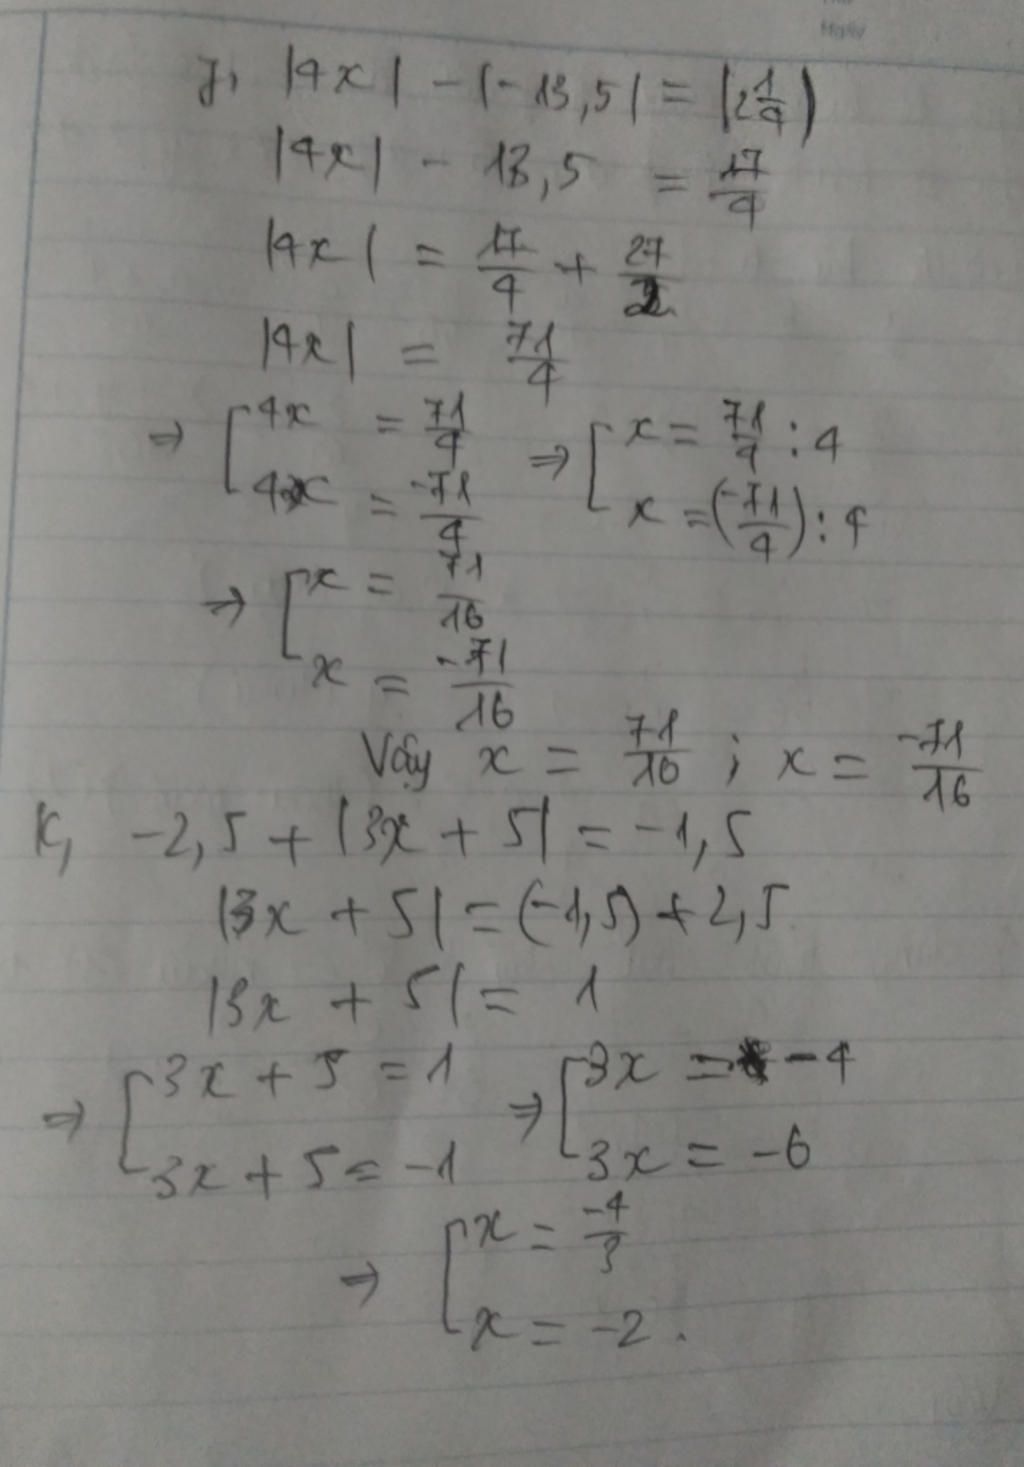 j, |4x| - |-13,5| = |2 1/4|
|4x| - 13,5 = 17/4
|4x| = 17/4 + 27/2
|4x| = 71/4
⇒ [4x = 71/4 ⇒ [x = 71/4 : 4
4x = -71/4 x = (-71/4) : 4
⇒ [x = 71/16
x = -71/16
Vậy x = 71/16 ; x = -71/16
K, -2,5 + |3x + 5| = -1,5
|3x + 5| = (-1,5) + 2,5
|3x + 5| = 1
⇒ [3x + 5 = 1 ⇒ [3x = -4
3x + 5 = -1 3x = -6
⇒ [x = -4/3
x = -2.